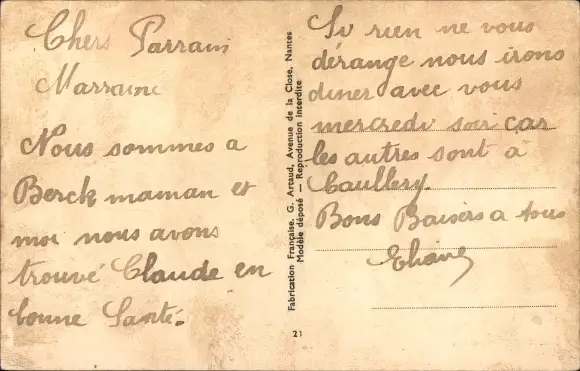 Chers Parrain
Marraine
Nous sommes a
Berck maman et
moi nous avons
trouvé Claude en
bonne Santé.
Fabrication Française, G. Artaud, Avenue de la Close, Nantes
Modèle déposé — Reproduction interdite
21
Si rien ne vous
dérange nous irons
diner avec vous
mercredi soir car
les autres sont à
Caullery.
Bons Baisers a tous
Eliane